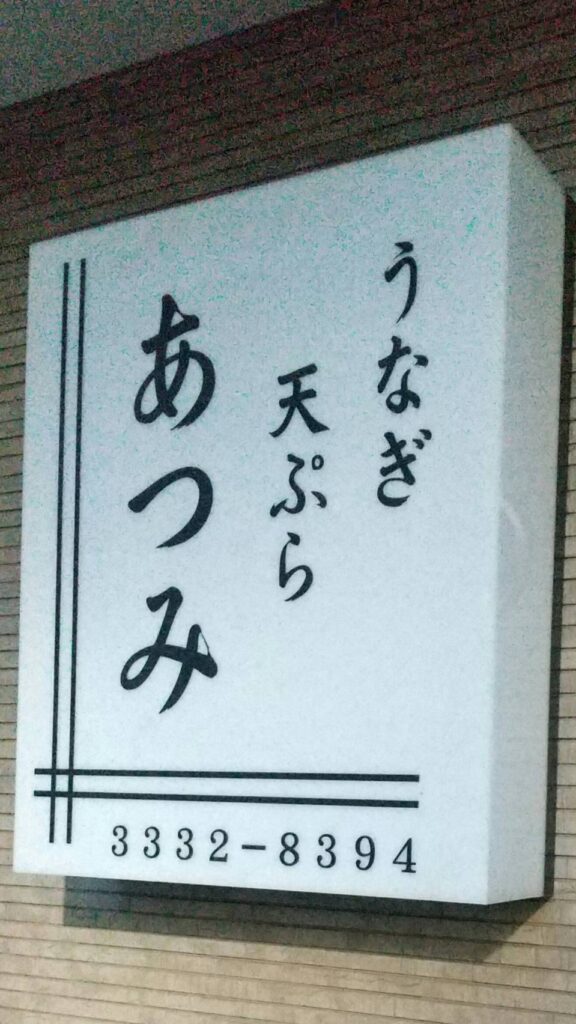 うなぎ
天ぷら
あつみ
3332-8394